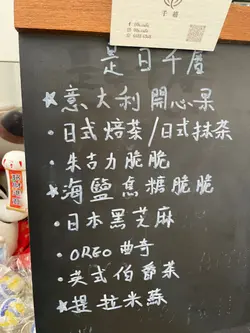 手感
是日千層
★意大利開心果
·日式焙茶/日式抹茶
·朱古力脆脆
★海鹽焦糖脆脆
·日本黑芝麻
·OREO曲奇
·英式伯爵茶
★提拉米蘇